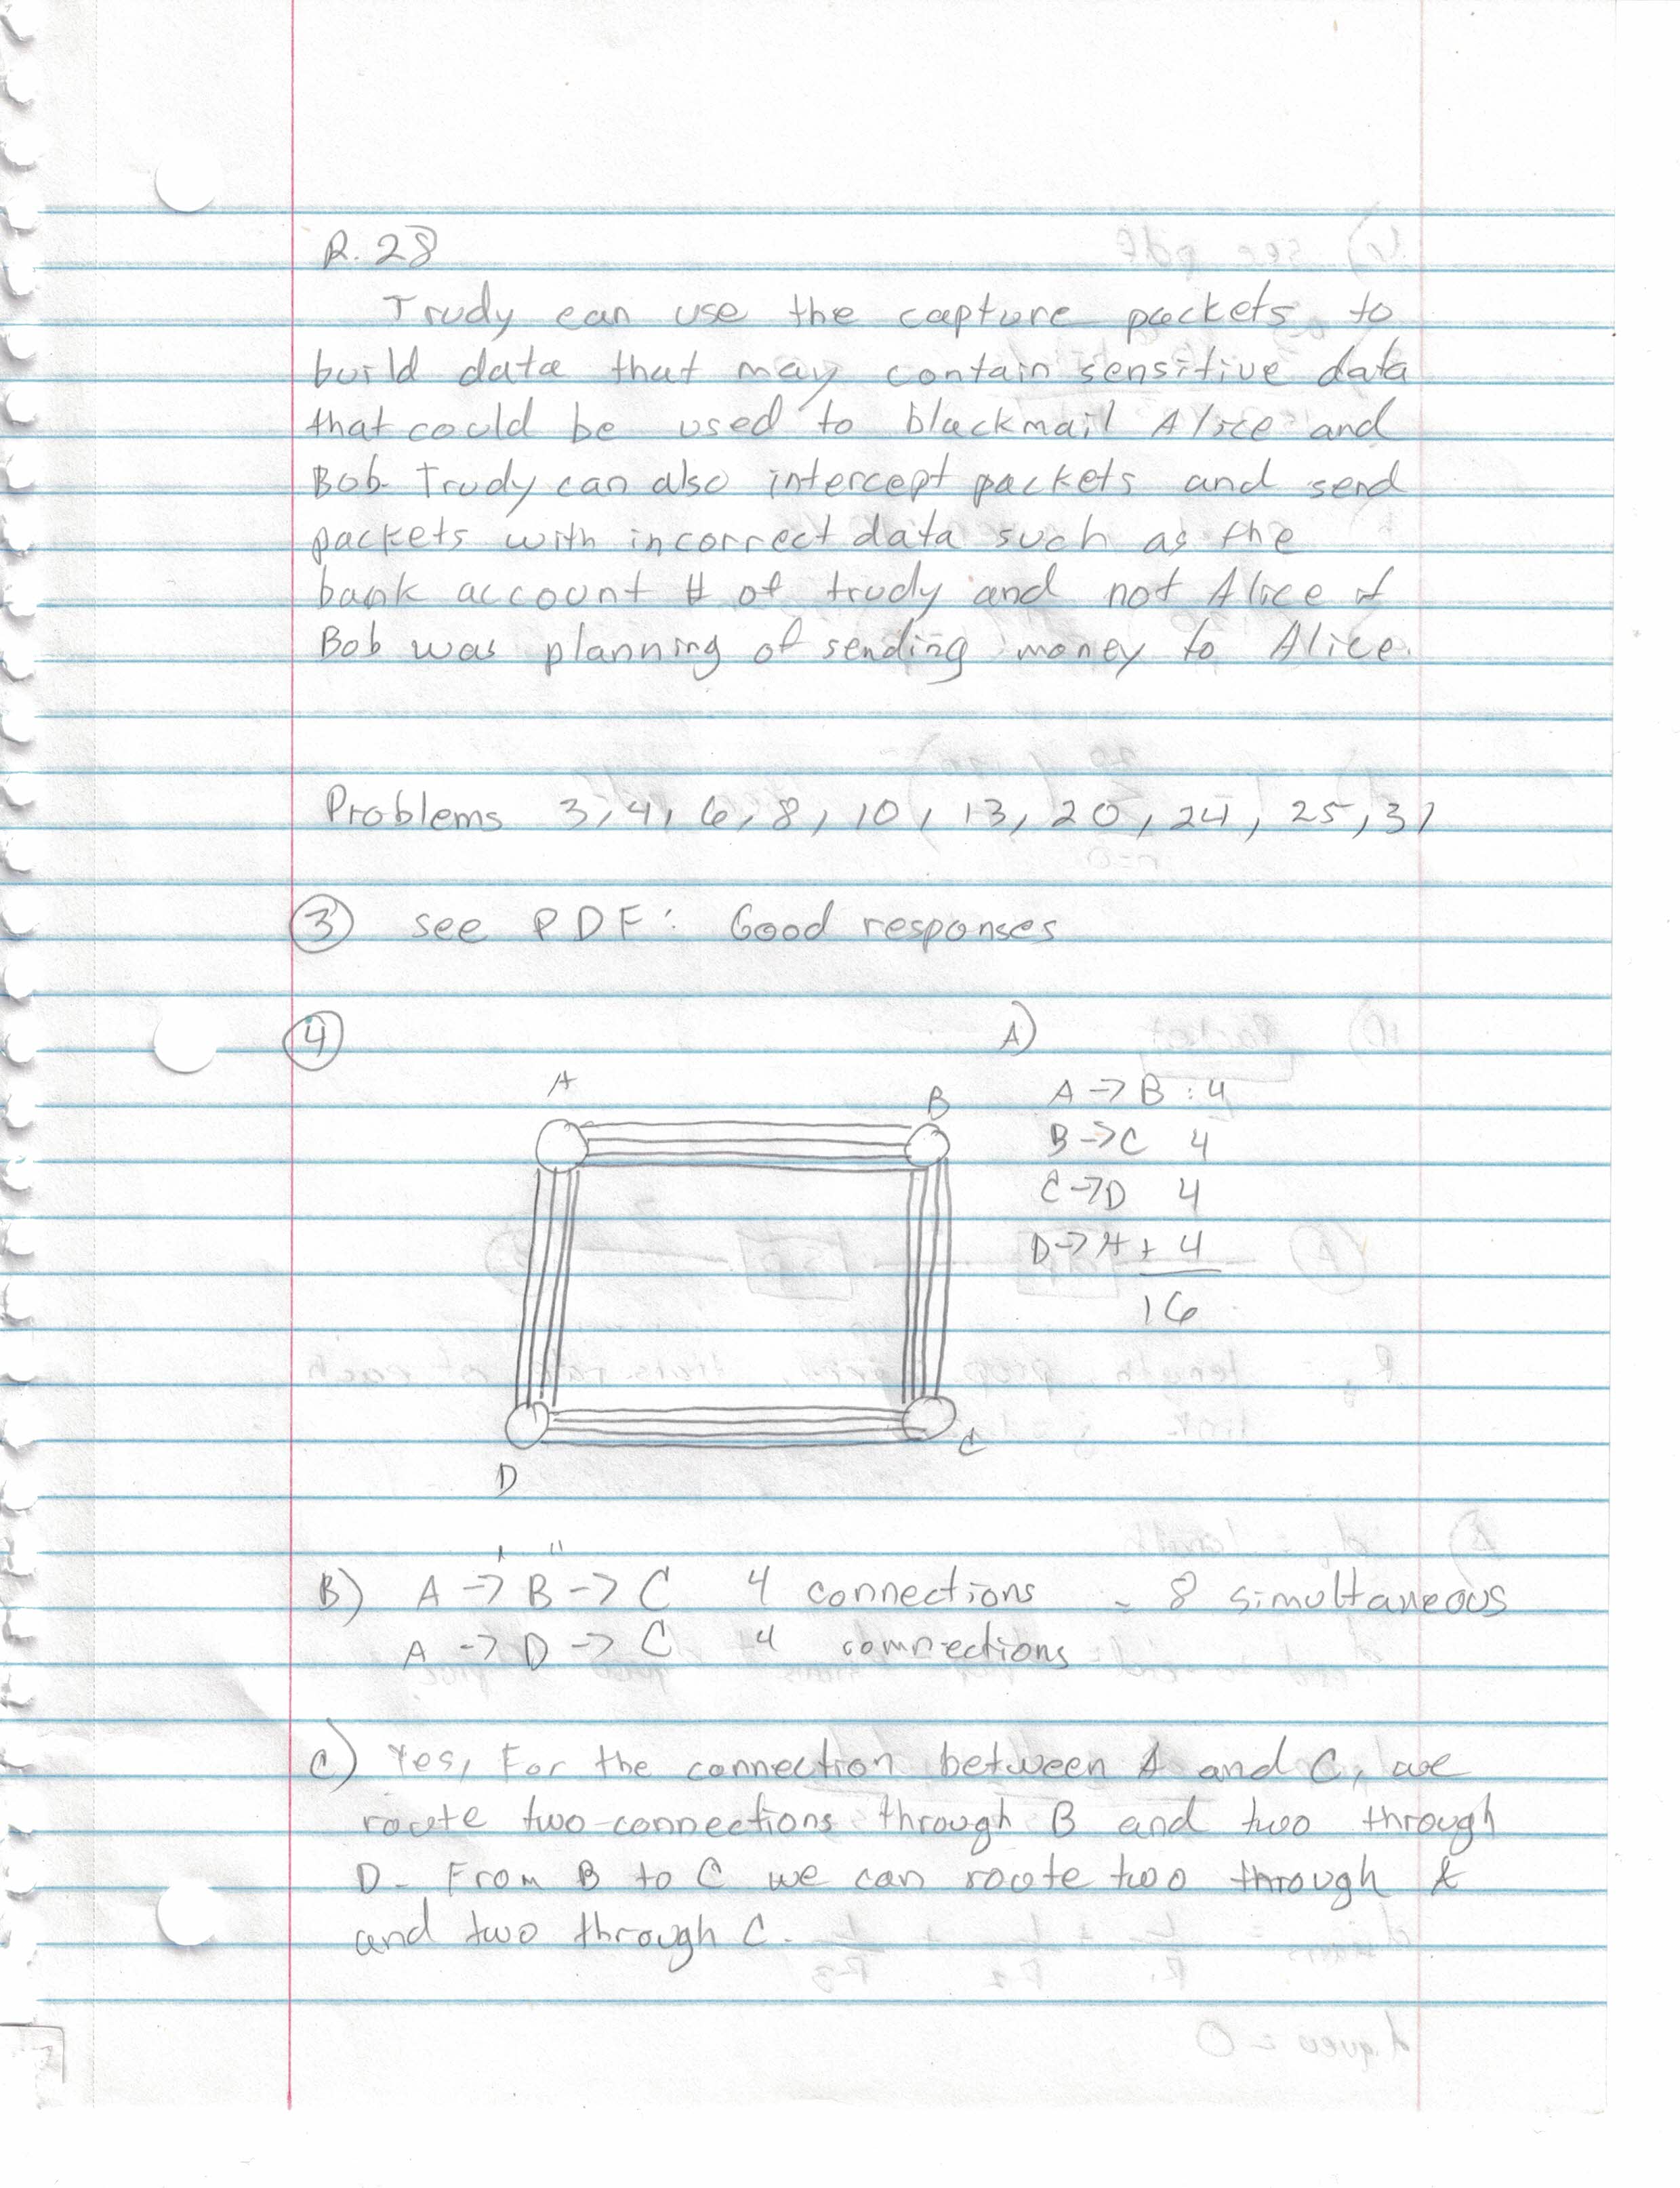 R. 28
Trudy can use the capture packets to
build data that may contain sensitive data
that could be used to blackmail Alice and
Bob. Trudy can also intercept packets and send
packets with incorrect data such as the
bank account # of trudy and not Alice if
Bob was planning of sending money to Alice.
Problems 3, 4, 6, 8, 10, 13, 20, 24, 25, 31
3 see PDF: Good responses
4
A)
A
B
A -> B : 4
B -> C 4
C -> D 4
D -> A + 4
16
C
D
B) A -> B -> C 4 connections = 8 simultaneous
A -> D -> C 4 connections
C) Yes, For the connection between A and C, we
route two connections through B and two through
D. From B to C we can route two through A
and two through C.